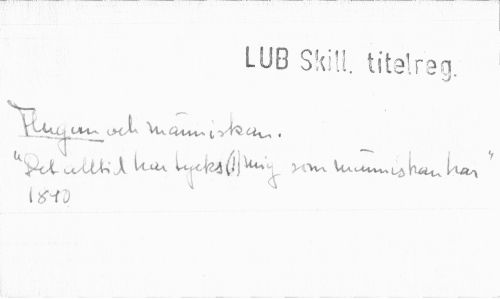 LUB Skill. titelreg.
Flugan och människan.
"Det alltid har tycks(!) mig som människan har"
1840